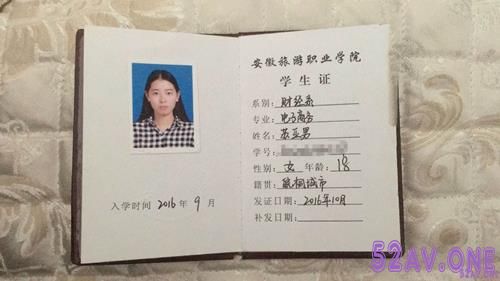 安徽旅游职业学院
学生证
系别:财经系
专业:电子商务
姓名:苏亚男
学号:
性别:女 年龄:18
籍贯:桐城市
发证日期:2016年10月
补发日期:
入学时间 2016 年 9 月
52AV.ONE